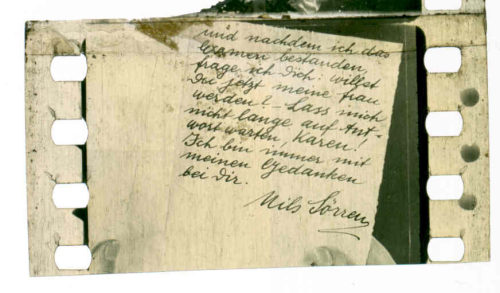 und nachdem ich das
Examen bestanden,
frage ich Dich: willst
Du jetzt meine Frau
werden? - Lass mich
nicht lange auf Ant-
wort warten, Karen!
Ich bin immer mit
meinen Gedanken
bei Dir.
Nils Sörren